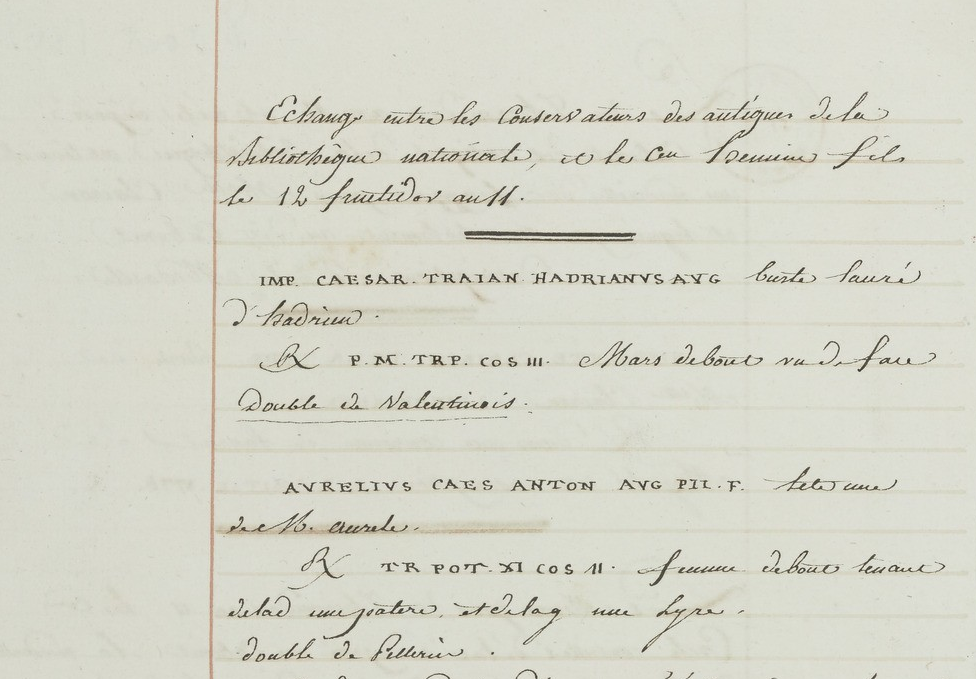 Echange entre les Conservateurs des antiques de la
Bibliothèque nationale, et le Cen hennin fils
le 12 fructidor an 11.
IMP. CAESAR. TRAIAN. HADRIANVS AVG buste lauré
d'hadrien.
℞ P.M. TRP. COS III. Mars debout vu de face
Double de Valentinois.
AVRELIVS CAES ANTON AVG PII. F. tete nue
de M. aurele.
℞ TR POT. XI COS II. femme debout tenant
de la d une patere, et de la g une lyre.
double de Pellerin.